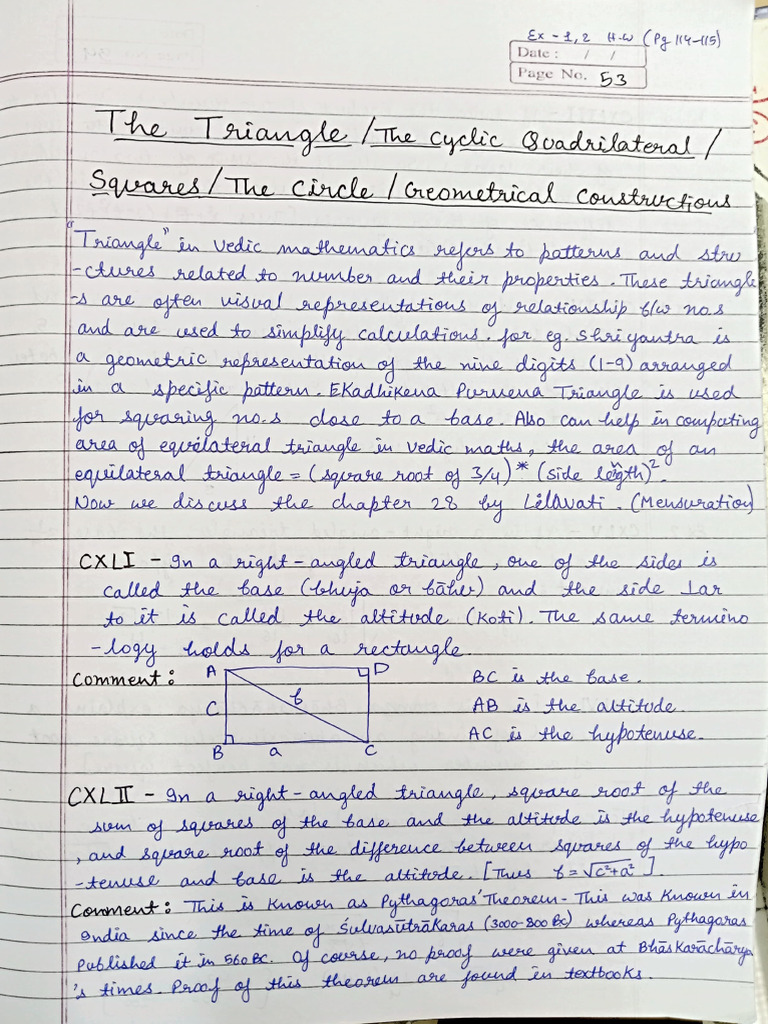 Ex - 1, 2 H.W (Pg 114-115)
Date : / /
Page No. 53
The Triangle / The Cyclic Quadrilateral /
Squares / The Circle / Geometrical Constructions
"Triangle" in Vedic mathematics refers to patterns and stru
-ctures related to number and their properties. These triangle
-s are often visual representations of relationship b/w no.s
and are used to simplify calculations. for eg. Shri yantra is
a geometric representation of the nine digits (1-9) arranged
in a specific pattern. EKadhikena Purvena Triangle is used
for squaring no.s close to a base. Also can help in computing
area of equilateral triangle in vedic maths, the area of an
equilateral triangle = (square root of 3/4) * (side length)².
Now we discuss the chapter 28 by Lilavati. (Mensuration)
CXLI - In a right-angled triangle, one of the sides is
called the base (bhuja or bāhu) and the side ⊥ar
to it is called the altitude (Koti). The same termino
-logy holds for a rectangle.
Comment : A D BC is the base.
C b AB is the altitude.
B a C AC is the hypotenuse.
CXLII - In a right-angled triangle, square root of the
sum of squares of the base and the altitude is the hypotenuse
, and square root of the difference between squares of the hypo
-tenuse and base is the altitude. [Thus b = √c²+a²].
Comment : This is Known as Pythagoras' Theorem - This was Known in
India since the time of Śulvasūtrākaras (3000-800 BC) whereas Pythagoras
Published it in 560 BC. Of course, no proof were given at Bhāskarāchārya
's times. Proof of this theorem are found in textbooks.